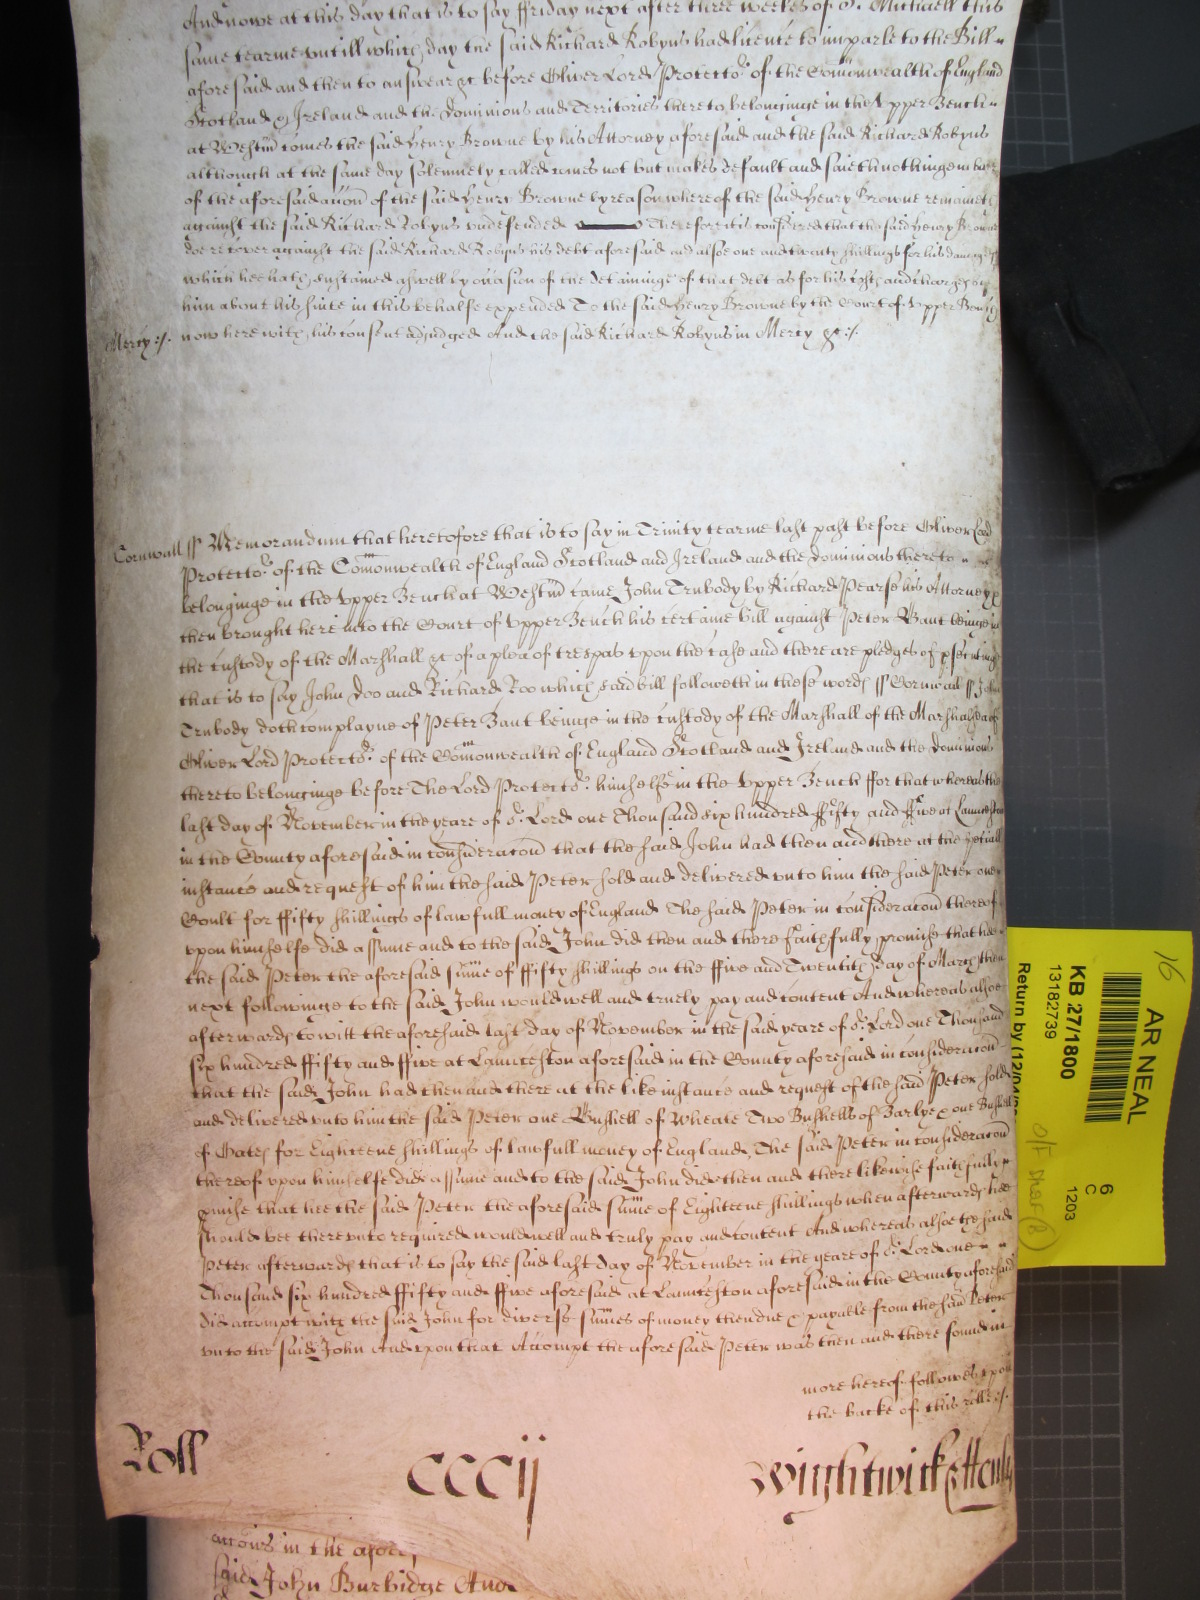 And nowe at this day that is to say ffriday next after three weekes of S. Michaell this
same tearme untill which day the said Richard Robyns had licence to imparle to the Bill
aforesaid and then to answear &c before Oliver Lord Protector of the Comonwealth of England
Scotland & Ireland and the Dominions and Territories thereto belonginge in the Upper Bench
at Westm comes the said Henry Browne by his Attorney aforesaid and the said Richard Robyns
although at the same day solemnely called comes not but makes default and saieth nothinge in barr
of the aforesaid accon of the said Henry Browne by reason whereof the said Henry Browne remaineth
against the said Richard Robyns undefended Therefore it is considered that the said Henry Browne
doe recover against the said Richard Robyns his debt aforesaid and alsoe one and twenty shillings for his damages
which hee hath sustained aswell by occasion of the detaininge of that debt as for his costs and charges by
him about his suite in this behalfe expended To the said Henry Browne by the Court of Upper Bench
Mercy :/. now here with his consent adjudged And the said Richard Robyns in Mercy &c :/.
Cornwall ss Memorandum that heretofore that is to say in Trinity tearme last past before Oliver Lord
Protector of the Comonwealth of England Scotland and Ireland and the Dominions thereto
belonginge in the Upper Bench at Westm came John Trubody by Richard Pearse his Attorney &
then brought here into the Court of Upper Bench his certaine bill against Peter Bant beinge in
the custody of the Marshall &c of a plea of trespas upon the case and there are pledges of psecutinge
that is to say John Doo and Richard Roo which said bill followeth in these words ss Cornwall ss John
Trubody doth complayne of Peter Bant beinge in the custody of the Marshall of the Marshalsea of
Oliver Lord Protector of the Comonwealth of England Scotland and Ireland and the Dominions
thereto belonginge before The Lord Protector himselfe in the Upper Bench ffor that whereas the
last day of November in the yeare of o Lord one Thousand six hundred ffifty and ffive at Lanceston
in the County aforesaid in consideracon that the said John had then and there at the speciall
instance and request of him the said Peter sold and delivered unto him the said Peter one
Coult for ffifty shillings of lawfull money of England The said Peter in consideracon thereof
upon himselfe did assume and to the said John did then and there faithfully promise that hee
the said Peter the aforesaid sume of ffifty shillings on the ffive and Twentith day of March then
next followinge to the said John would well and truely pay and content And whereas alsoe
afterwards to witt the aforesaid last day of November in the said yeare of o Lord one Thousand
six hundred ffifty and ffive at Lanceston aforesaid in the County aforesaid in consideracon
that the said John had then and there at the like instance and request of the said Peter sold
and delivered unto him the said Peter one Bushell of Wheate Two Bushells of Barlye & one Bushell
of Oates for Eighteene shillings of lawfull money of England, The said Peter in consideracon
thereof upon himselfe did assume and to the said John did then and there likewise faithfully
pmise that hee the said Peter the aforesaid sume of Eighteene shillings when afterwards hee
should bee thereunto required would well and truly pay and content And whereas alsoe the said
Peter afterwards that is to say the said last day of November in the yeare of o Lord one
Thousand six hundred ffifty and ffive aforesaid at Lanceston aforesaid in the County aforesaid
did accompt with the said John for diverse sumes of money then due & payable from the said Peter
unto the said John And upon that Accompt the aforesaid Peter was then and there found in
more hereof followes upon
the backe of this rolle :/.
Roll cccij Wightwick &
in the
said John Burbidge
16
AR NEAL
6
C
1203
KB 27/1800
13182739
Return by (12/04/